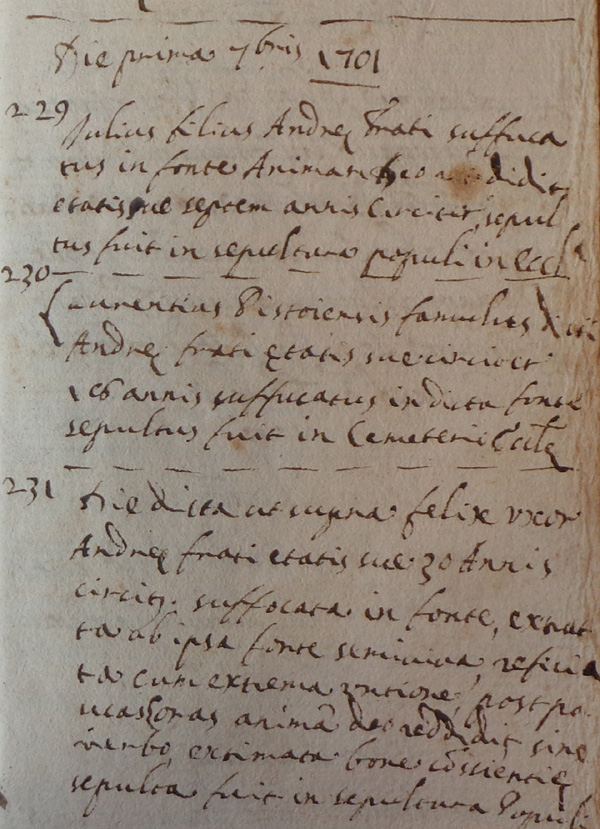 Die prima 7bris 1701
229
Julius filius Andreę Frati suffuca
tus in fonte Animam Deo reddidit
etatis sue septem annis circiter sepul
tus fuit in sepultura populi in eccl
230
Laurentius Pistoiensis famulus dicti
Andreę frati ętatis sue circiter
16 annis suffucatus in dicta fonte
sepultus fuit in Cemeterio
231
Die dicta ut supra felix uxor
Andreę frati etatis sue 30 Annis
circiter suffocata in fonte, extrac
ta ab ipsa fonte semiviva, refecta
ta cum extrema untione, post pa
ucas horas animā deo reddidit sine
verbo, extimata bone cōssientię
sepulta fuit in sepultura Populi